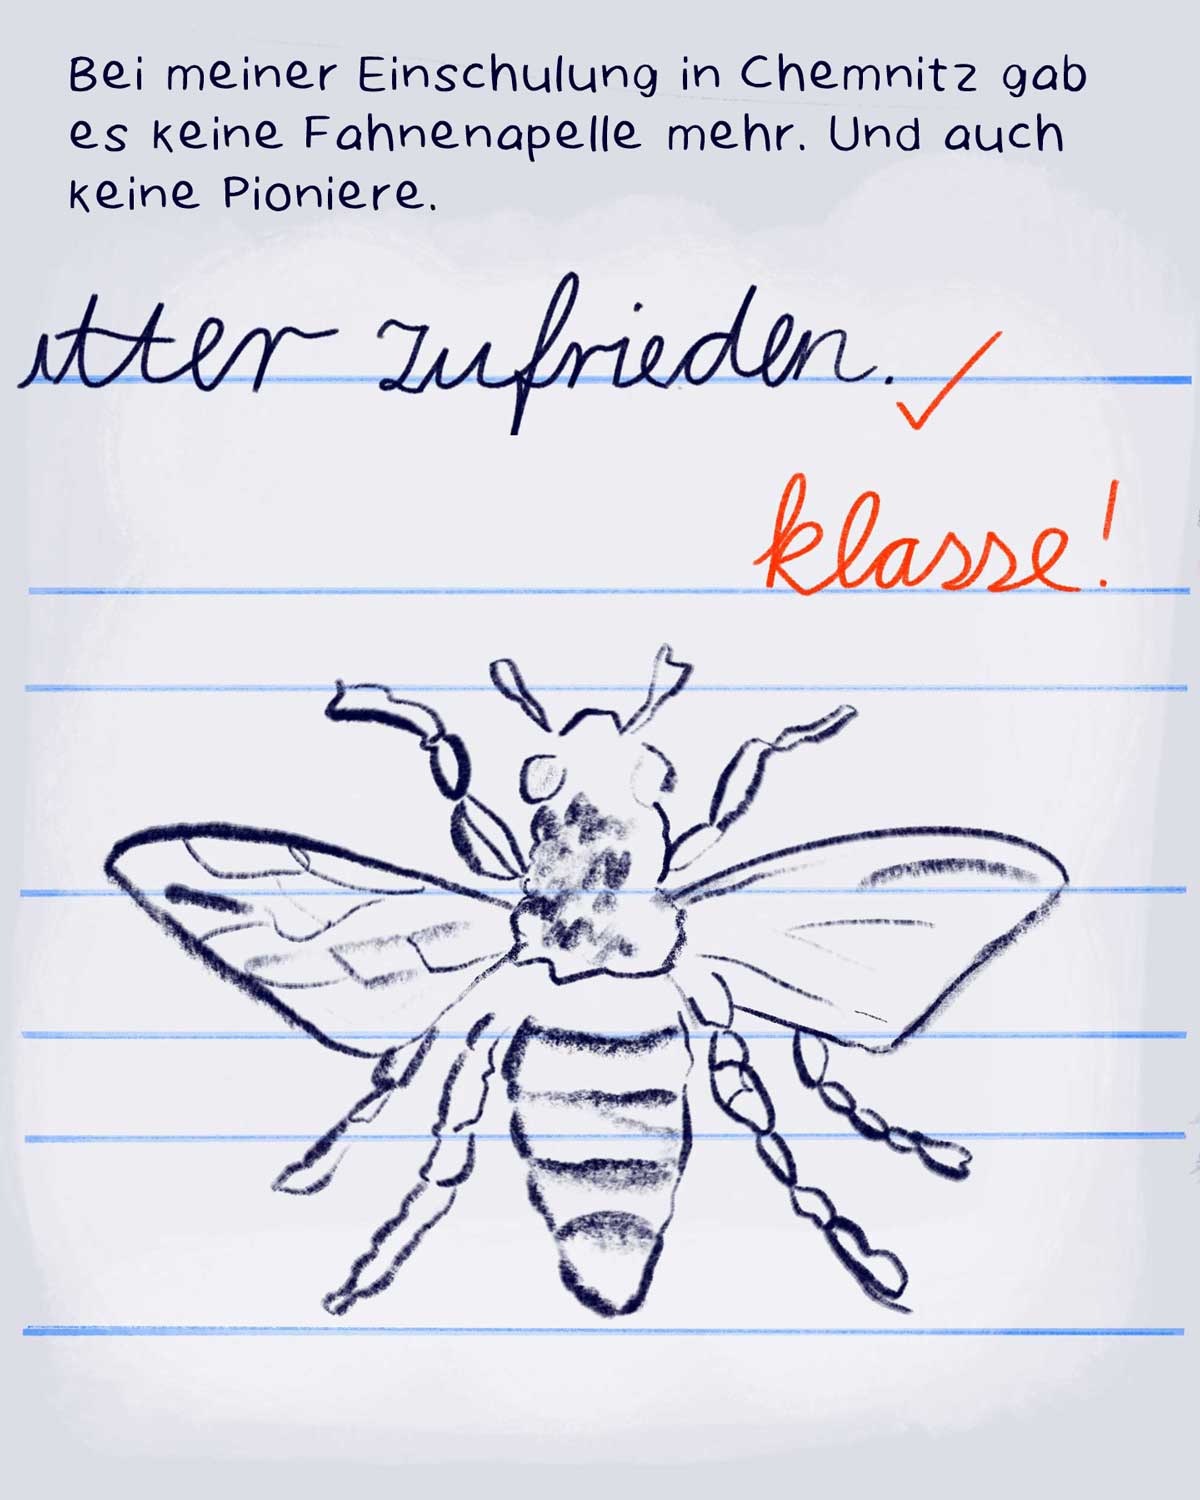 Bei meiner Einschulung in Chemnitz gab
es keine Fahnenapelle mehr. Und auch
keine Pioniere.
utter zufrieden.
klasse!